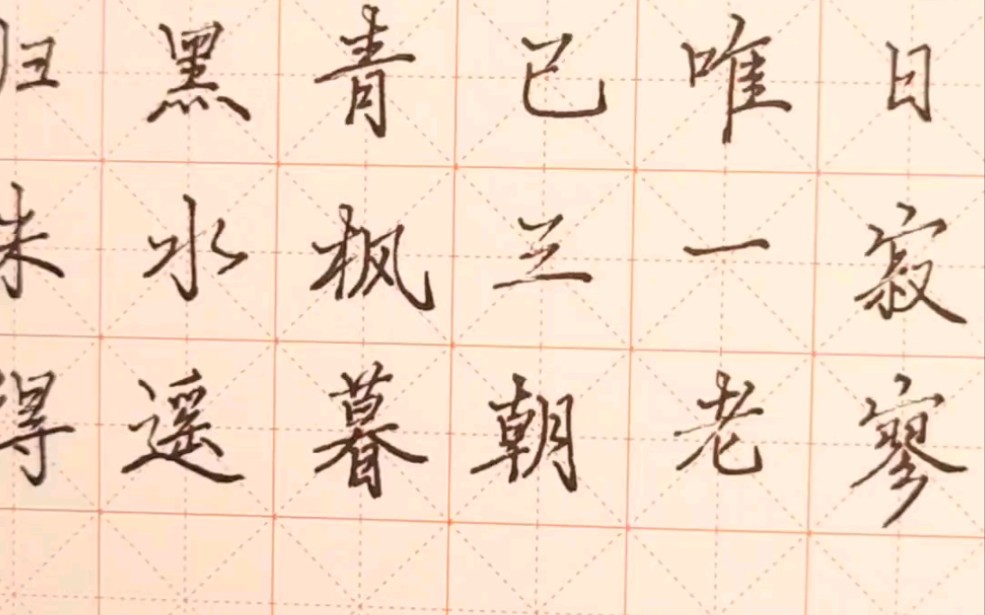 日寂寥
唯一老
已三朝
青枫暮
黑水遥
归未得